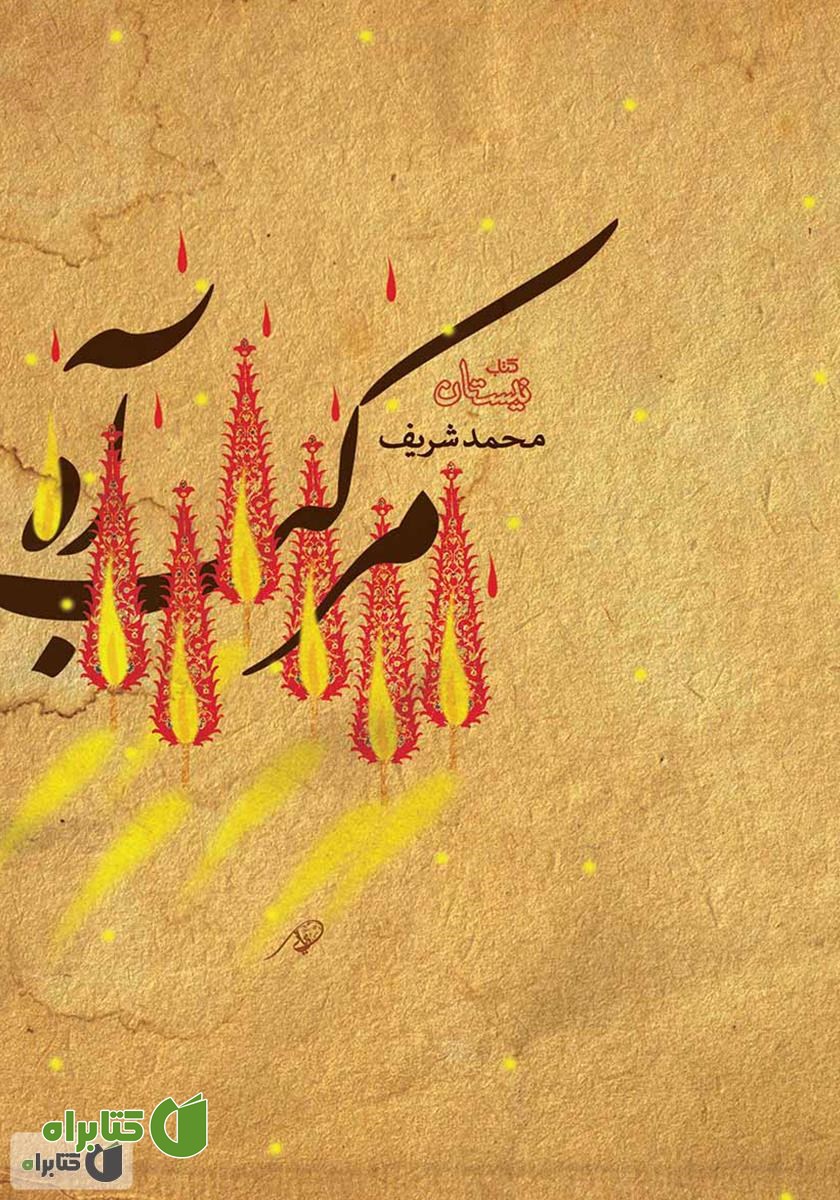 مرکب
کتاب
نیستان
محمد شریف
کتابراه
کتابراه